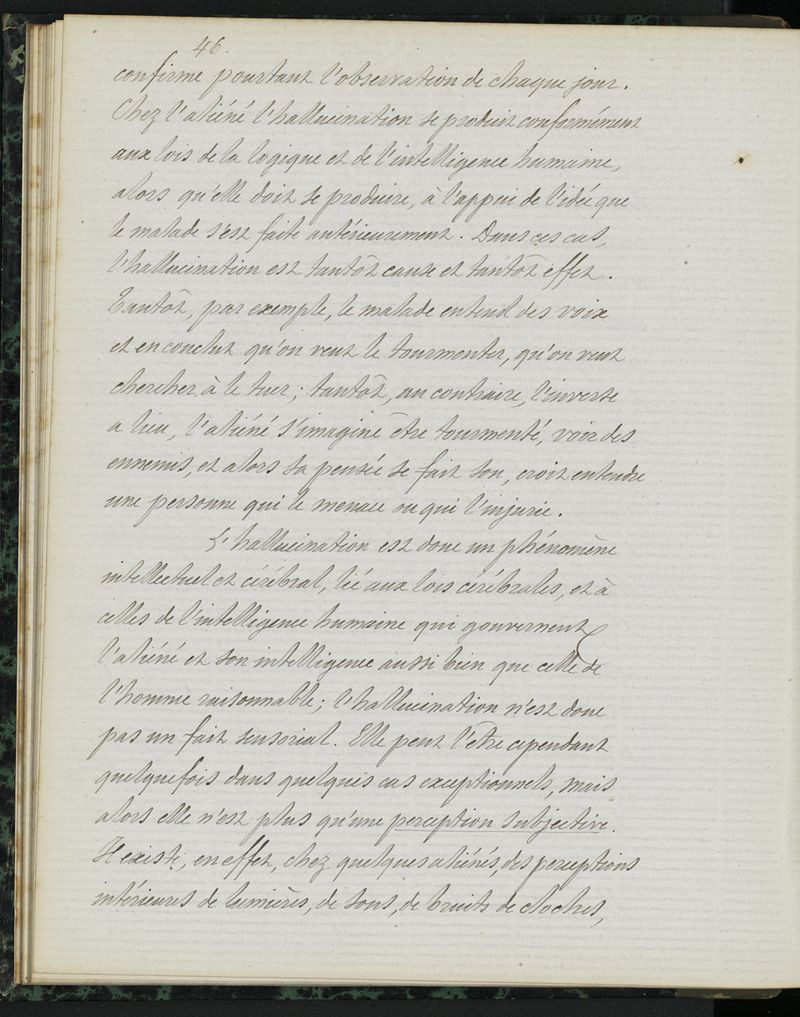 46.
confirme pourtant l'observation de chaque jour.
Chez l'aliéné l'hallucination se produit conformément
aux lois de la logique et de l'intelligence humaine,
alors qu'elle doit se produire, à l'appui de l'idée que
le malade s'est faite antérieurement. Dans ces cas,
l'hallucination est tantôt cause et tantôt effet.
Tantôt, par exemple, le malade entend des voix
et en conclut qu'on veut le tourmenter, qu'on veut
chercher à le tuer; tantôt, au contraire, l'inverse
a lieu, l'aliéné s'imagine être tourmenté, voir des
ennemis, et alors sa pensée se fait son, croit entendre
une personne qui le menace ou qui l'injurie.
L'hallucination est donc un phénomène
intellectuel et cérébral, lié aux lois cérébrales, et à
celles de l'intelligence humaine qui gouvernent
l'aliéné et son intelligence aussi bien que celle de
l'homme raisonnable; l'hallucination n'est donc
pas un fait sensorial. Elle peut l'être cependant
quelquefois dans quelques cas exceptionnels, mais
alors elle n'est plus qu'une perception subjective.
Il existe, en effet, chez quelques aliénés, des perceptions
intérieures de lumières, de sons, de bruits de cloches,